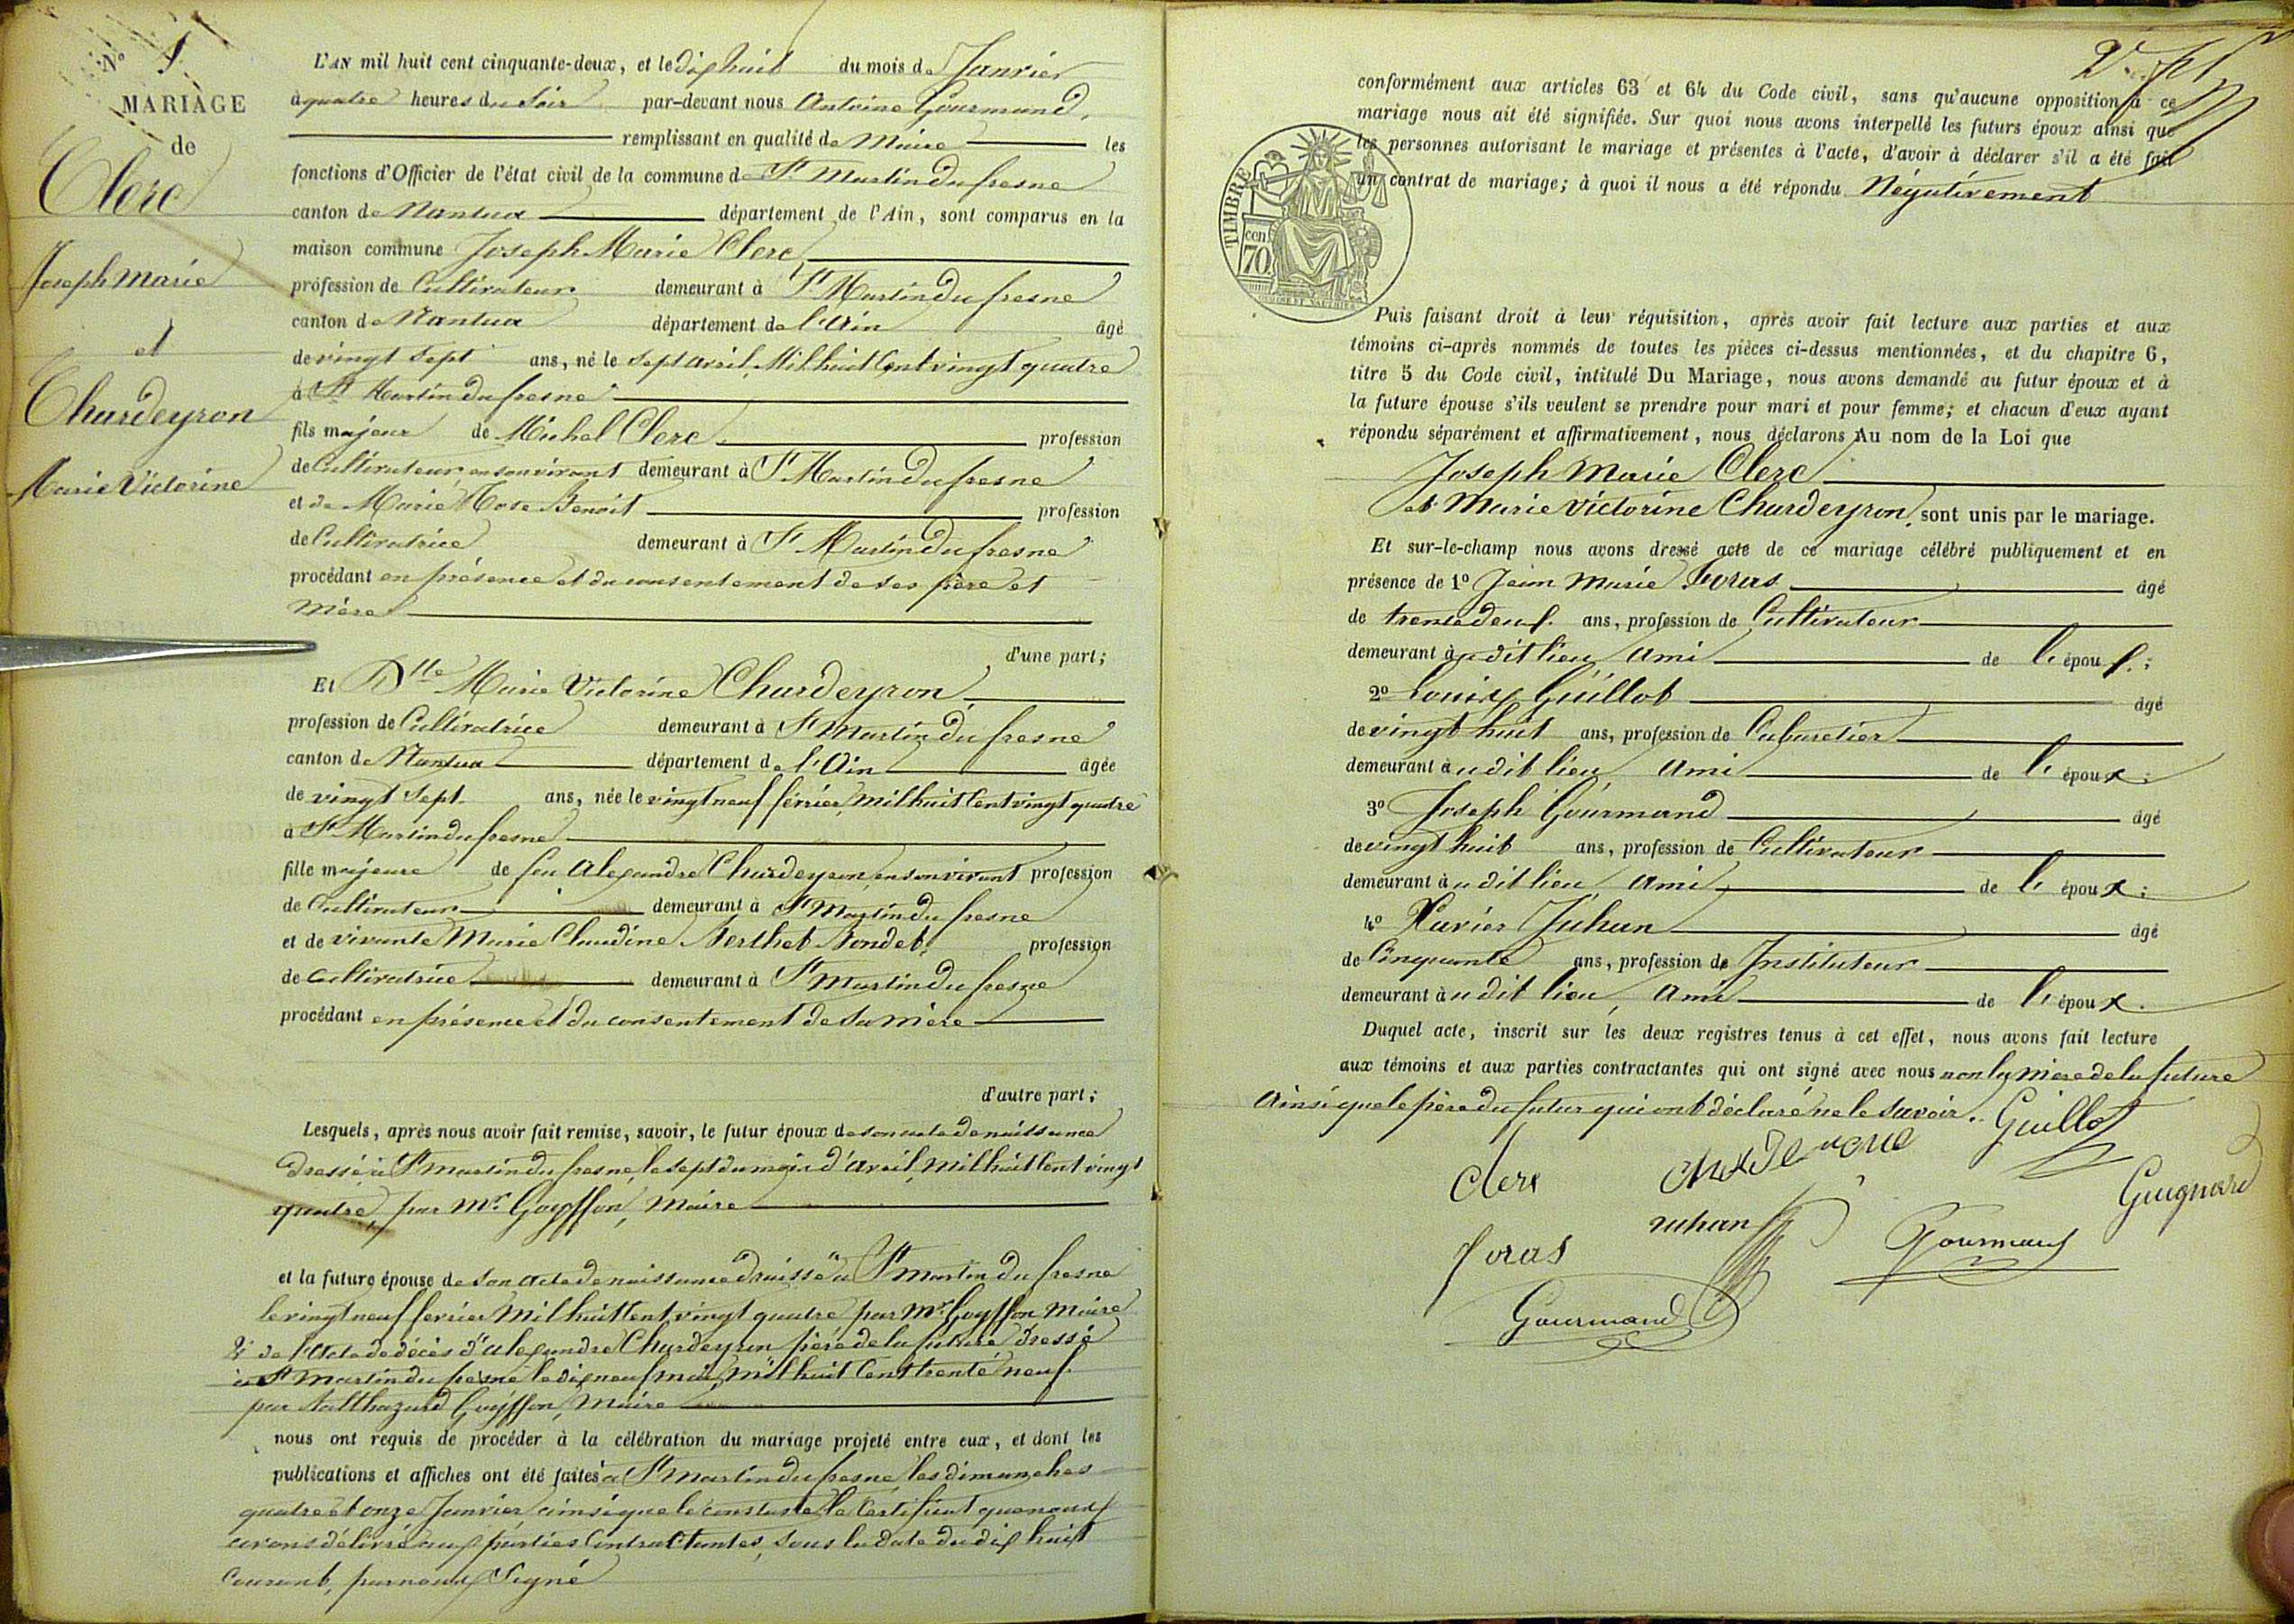 N° 1
MARIAGE
de
Clerc
Joseph Marie
et
Chardeyron
Marie Victorine
L'AN mil huit cent cinquante-deux, et le dix huit du mois de Janvier
à quatre heures du Soir par-devant nous Antoine Gourmand,
remplissant en qualité de Maire les
fonctions d'Officier de l'état civil de la commune de St Martin du fresne
canton de Nantua département de l'Ain, sont comparus en la
maison commune Joseph Marie Clerc,
profession de Cultivateur demeurant à St Martin du fresne
canton de Nantua département de l'Ain âgé
de vingt Sept ans, né le Sept avril, Mil huit Cent vingt quatre
à St Martin du fresne
fils majeur de Michel Clerc profession
de Cultivateur, en son vivant demeurant à St Martin du fresne
et de Marie Rose Benoit profession
de Cultivatrice demeurant à St Martin du fresne
procédant en présence et du consentement de ses père et
Mère
d'une part;
Et Dlle Marie Victorine Chardeyron,
profession de Cultivatrice demeurant à St Martin du fresne
canton de Nantua département de l'Ain âgée
de vingt Sept ans, née le vingt neuf février, Mil huit Cent vingt quatre
à St Martin du fresne
fille majeure de feu Alexandre Chardeyron, en son vivant profession
de Cultivateur demeurant à St Martin du fresne
et de vivante Marie Claudine Berthet Bondet, profession
de Cultivatrice demeurant à St Martin du fresne
procédant en présence et du consentement de Sa Mère
d'autre part;
Lesquels, après nous avoir fait remise, savoir, le futur époux de son acte de naissance
dressé à St Martin du fresne, le Sept du mois d'avril, Mil huit Cent vingt
quatre, par Mr. Goyffon, Maire
et la future épouse de Son acte de naissance draissé à St Martin du fresne
le vingt neuf ferrier Mil huit Cent vingt quatre, par Mr. Goyffon Maire
2° de l'Acte de décès d'alexandre Chardeyron père de la future dressé
à St Martin du fresne le dix neuf mai, Mil huit Cent trente neuf
par Balthazard Goyffon, Maire
nous ont requis de procéder à la célébration du mariage projeté entre eux, et dont les
publications et affiches ont été faites à St Martin du fresne, les dimanches
quatre et onze Janvier ainsi que le constate le Certificat que nous
avons délivré aux parties Contractantes, sous la date du dix huit
Courant, par nous Signé
conformément aux articles 63 et 64 du Code civil, sans qu'aucune opposition à ce
mariage nous ait été signifiée. Sur quoi nous avons interpellé les futurs époux ainsi que
les personnes autorisant le mariage et présentes à l'acte, d'avoir à déclarer s'il a été fait
un contrat de mariage; à quoi il nous a été répondu Négativement
TIMBRE
cen.
70
Puis faisant droit à leur réquisition, après avoir fait lecture aux parties et aux
témoins ci-après nommés de toutes les pièces ci-dessus mentionnées, et du chapitre 6,
titre 5 du Code civil, intitulé Du Mariage, nous avons demandé au futur époux et à
la future épouse s'ils veulent se prendre pour mari et pour femme; et chacun d'eux ayant
répondu séparément et affirmativement, nous déclarons Au nom de la Loi que
Joseph Marie Clerc
et Marie Victorine Chardeyron, sont unis par le mariage.
Et sur-le-champ nous avons dressé acte de ce mariage célébré publiquement et en
présence de 1° Jean Marie Foras âgé
de trente deux ans, profession de Cultivateur
demeurant audit lieu, Ami de l' époux;
2° Louis Guillot âgé
de vingt huit ans, profession de Cabaretier
demeurant audit lieu, Ami de l' époux;
3° Joseph Gourmand âgé
de vingt huit ans, profession de Cultivateur
demeurant audit lieu, Ami de l' époux;
4° Xavier Juhan âgé
de Cinquante ans, profession de Instituteur
demeurant audit lieu, Ami de l' époux.
Duquel acte, inscrit sur les deux registres tenus à cet effet, nous avons fait lecture
aux témoins et aux parties contractantes qui ont signé avec nous non la Mère de la future
Ainsi que le père du futur qui ont déclaré ne le Savoir. Guillot
Clerc
juhan
Guignard
Foras
Gourmand
Gourmand